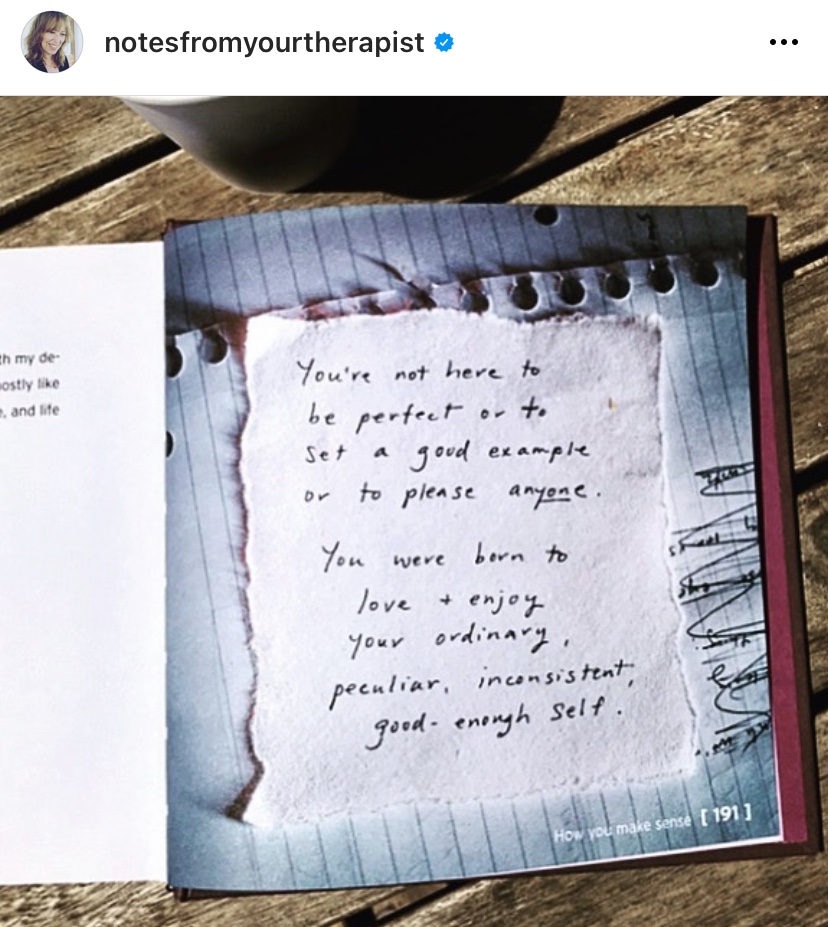 notesfromyourtherapist
th my de-
ostly like
, and life
You're not here to
be perfect or to
set a good example
or to please anyone.
You were born to
love + enjoy
your ordinary,
peculiar, inconsistent,
good-enough self.
How you make sense [ 191 ]